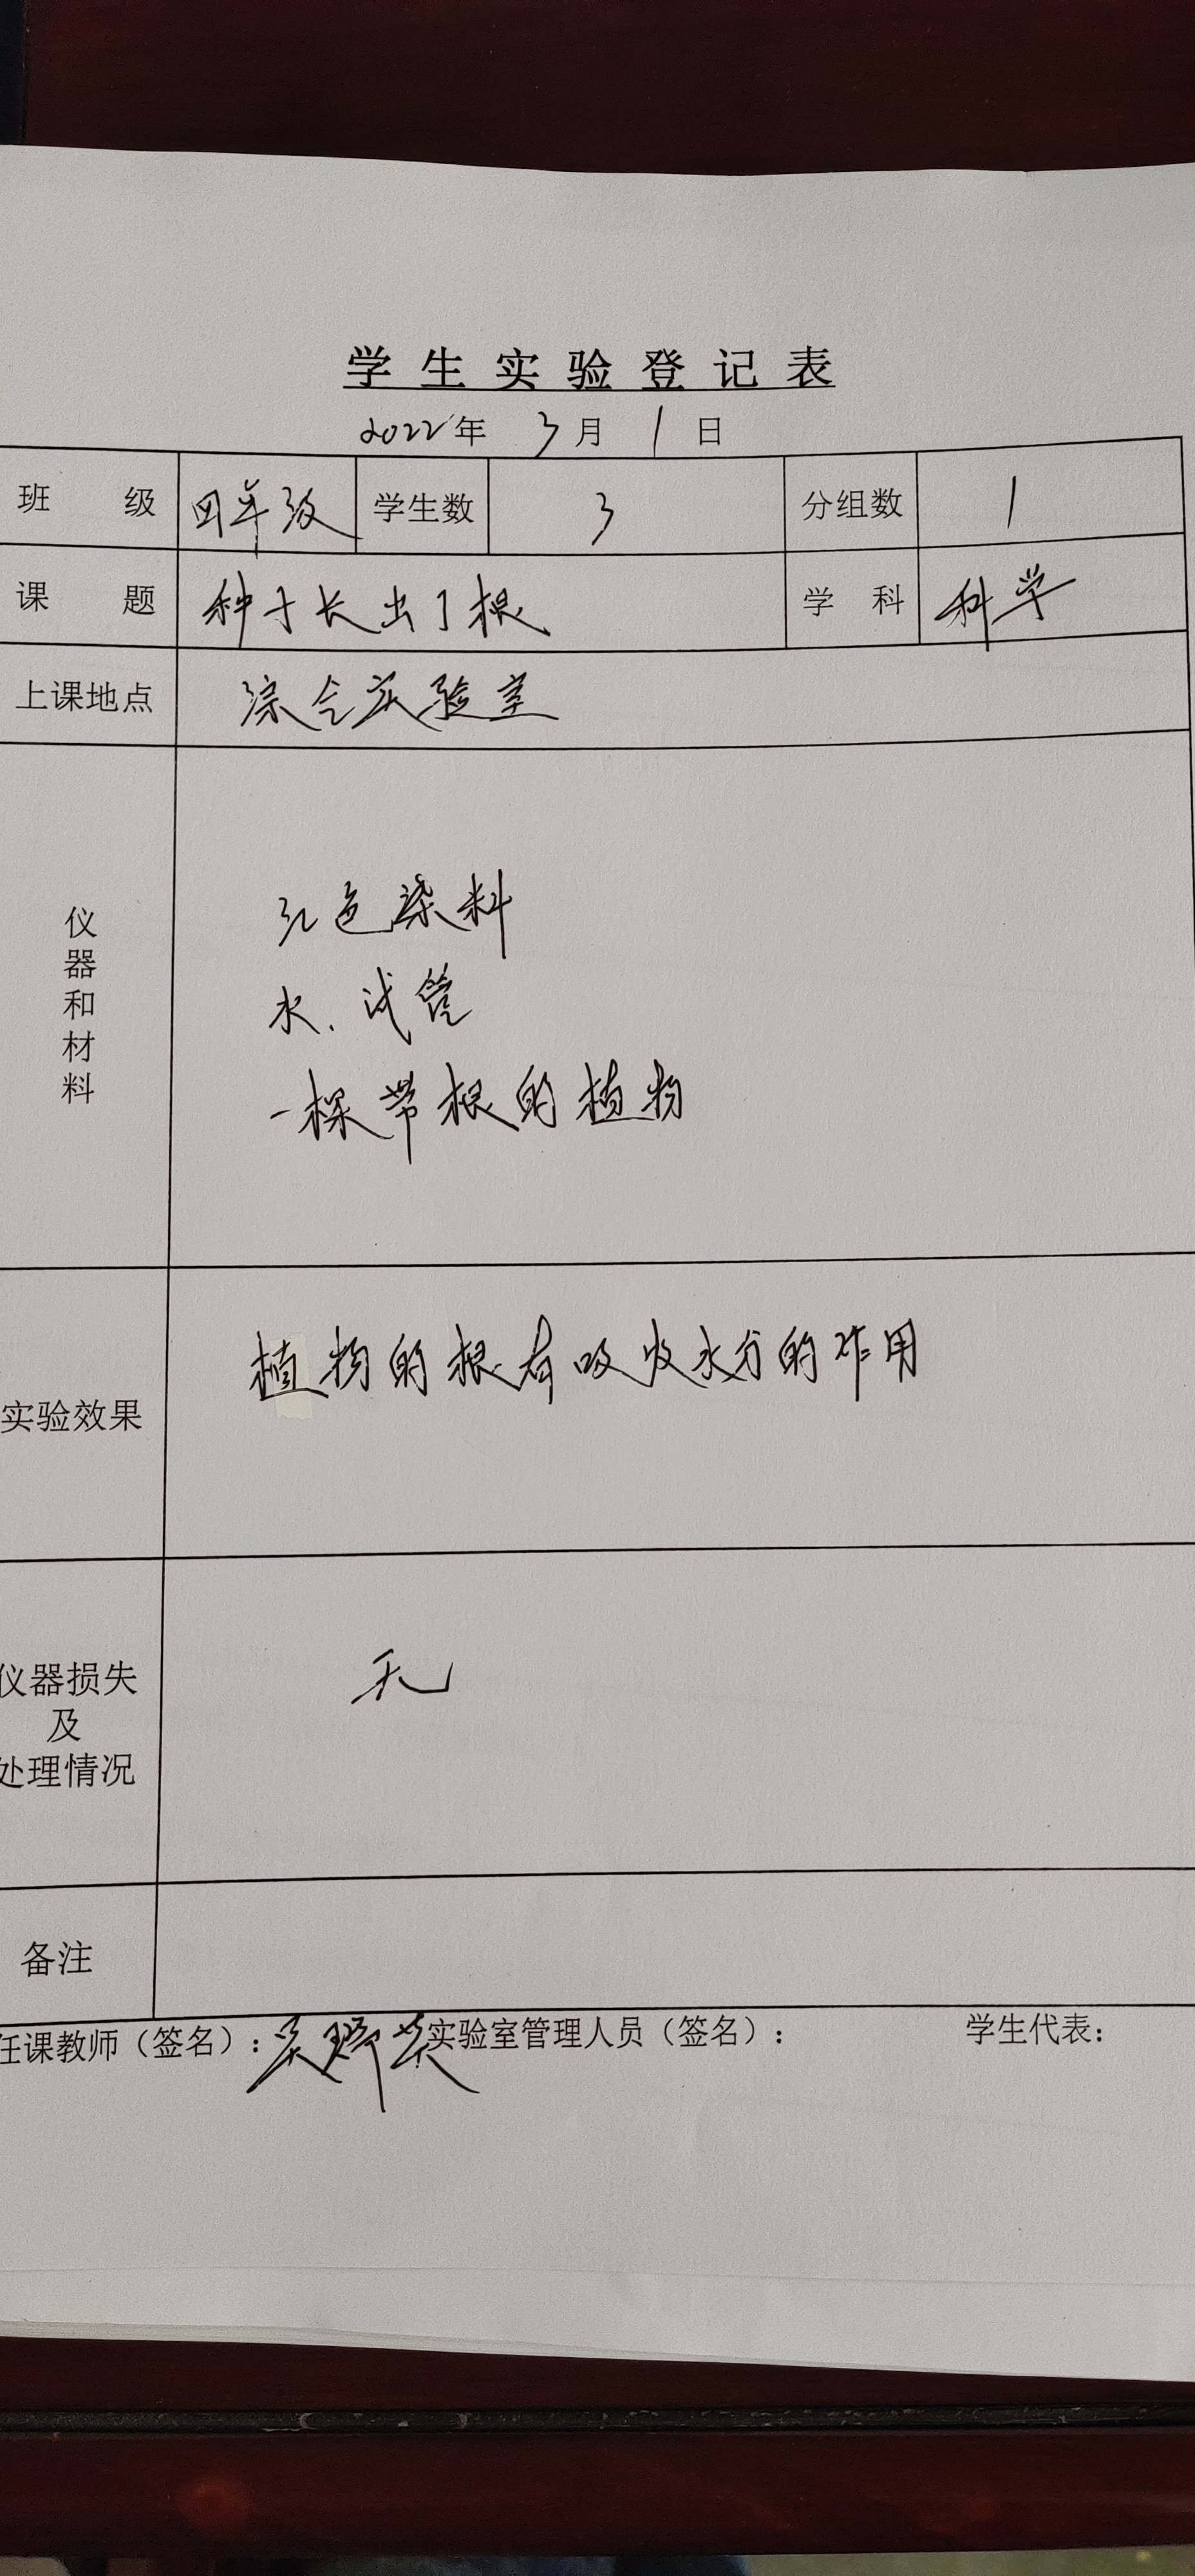 学生实验登记表
2022年 3月 1日
班 级 四年级 学生数 3 分组数 1
课 题 种子长出了根 学 科 科学
上课地点 综合实验室
仪器和材料
红色染料
水、试管
一棵带根的植物
实验效果
植物的根有吸收水分的作用
仪器损失
及
处理情况
无
备注
任课教师（签名）： 实验室管理人员（签名）： 学生代表：